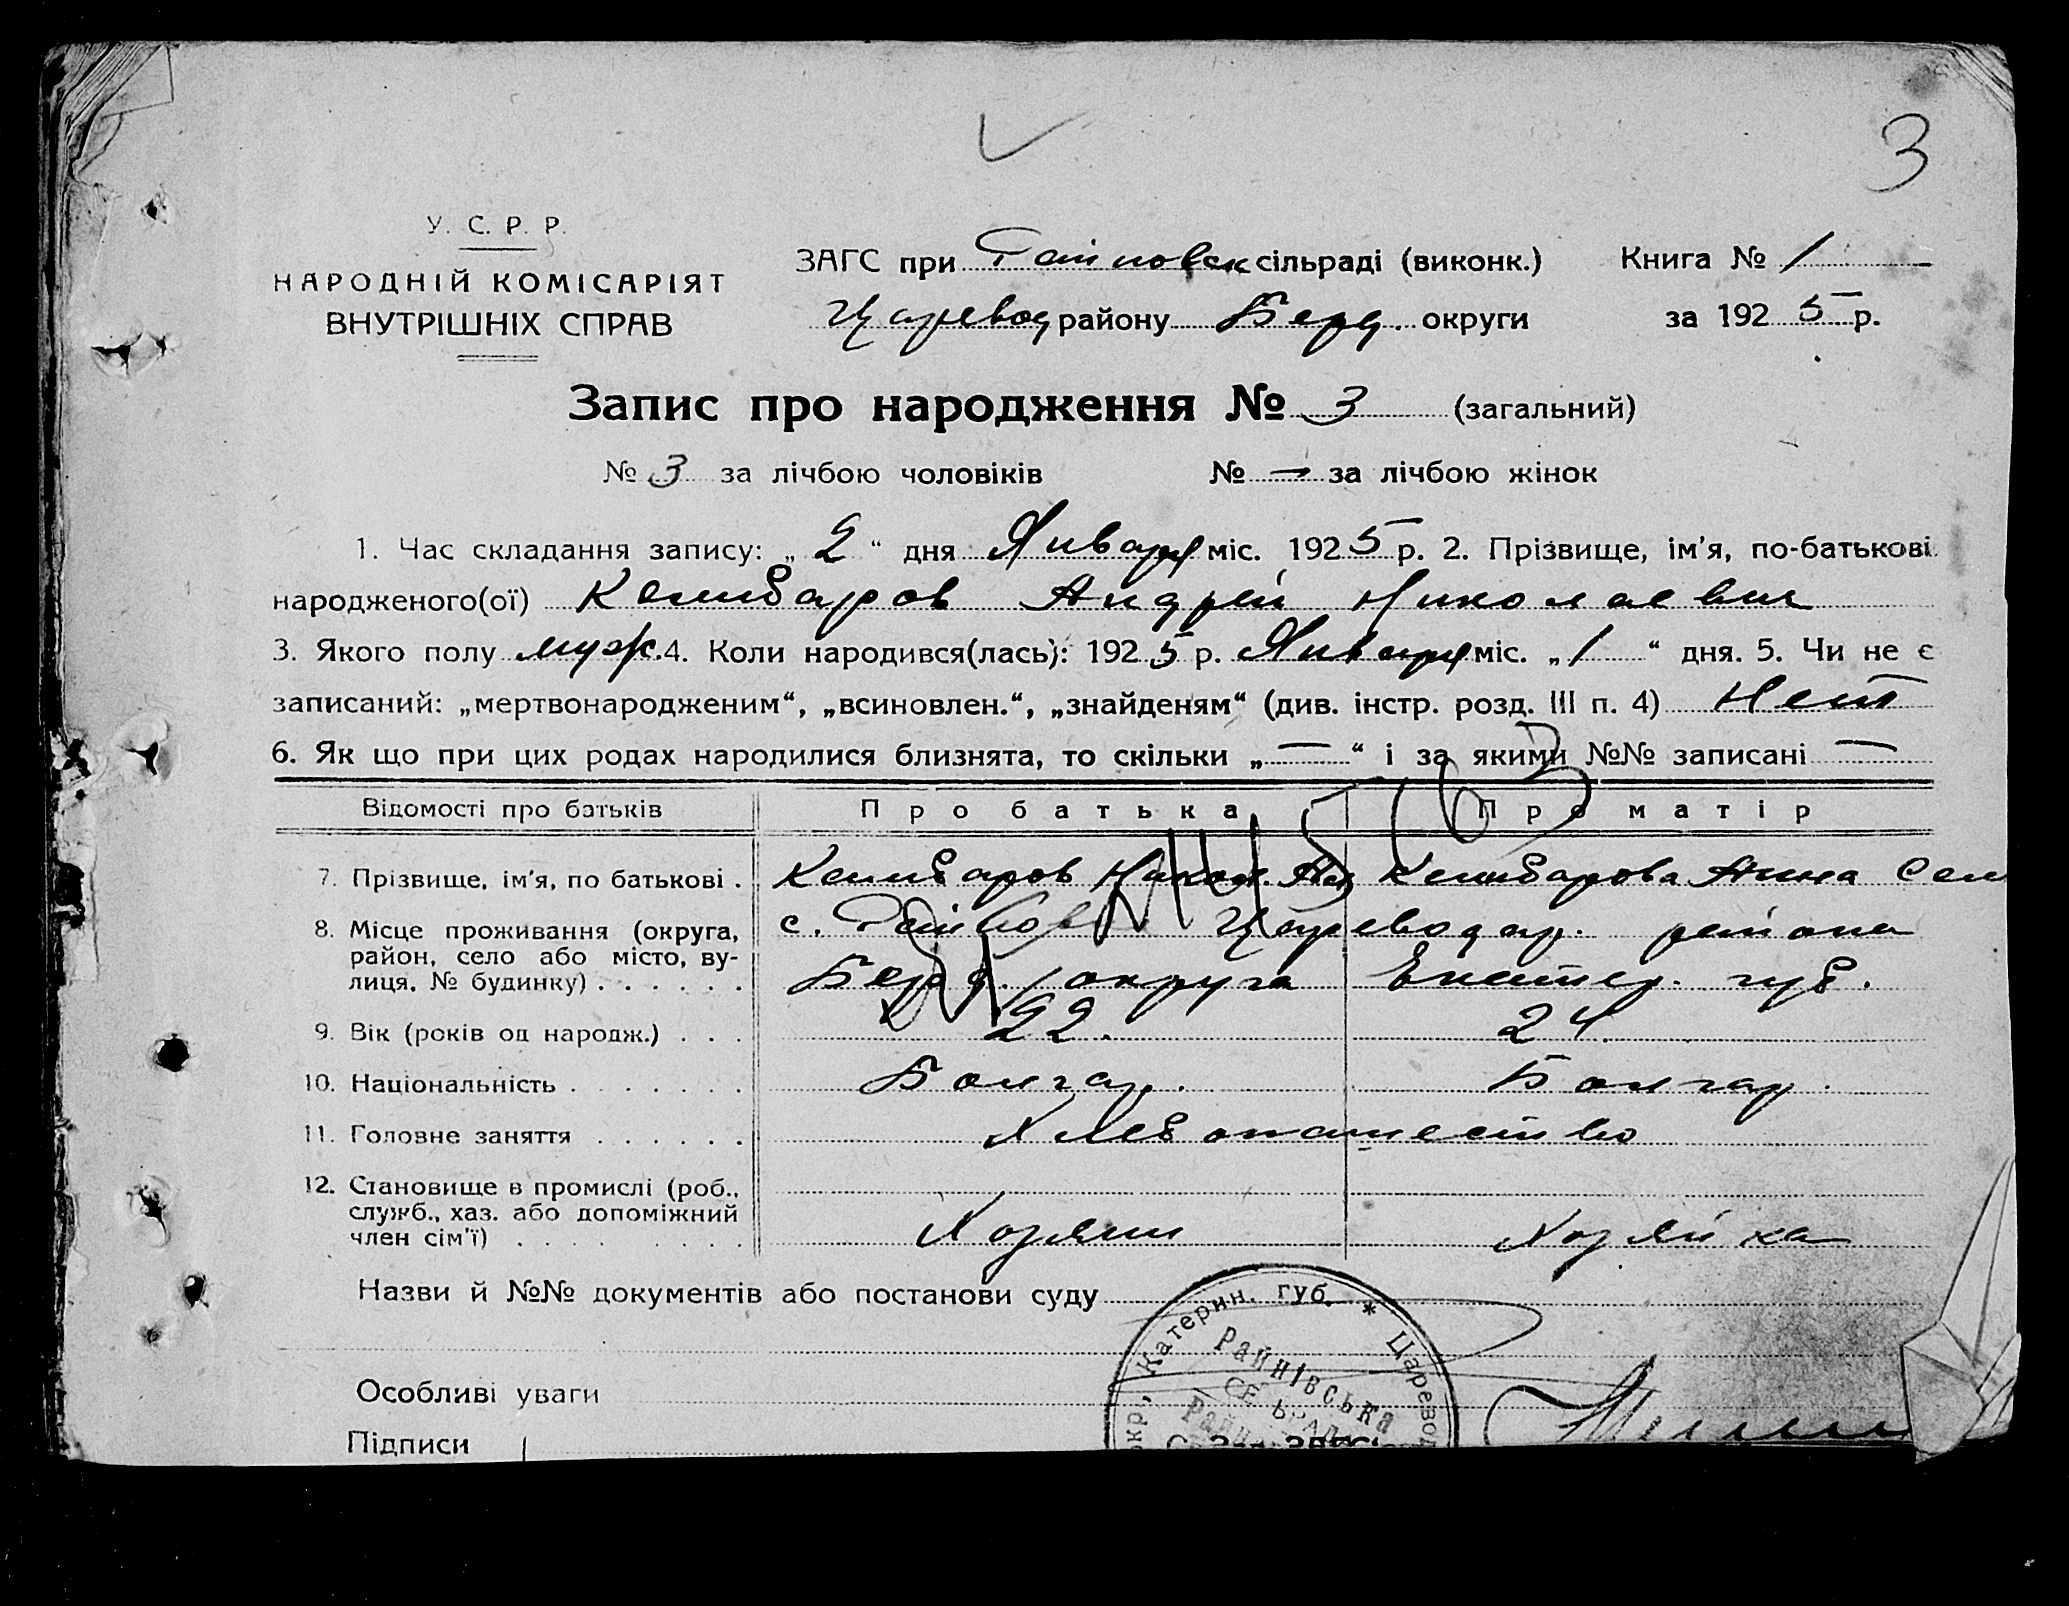 3
У. С. Р. Р.
НАРОДНІЙ КОМІСАРІЯТ
ВНУТРІШНІХ СПРАВ
ЗАГС при Райновск сільраді (виконк.) Книга № 1
Царевод району Берд. округи за 1925 р.
Запис про народження № 3 (загальний)
№ 3 за лічбою чоловіків № — за лічбою жінок
1. Час складання запису: „2“ дня Января міс. 1925 р. 2. Прізвище, ім'я, по-батькові
народженого(ої) Кенибаров Андрей Николаевич
3. Якого полу муж. 4. Коли народився(лась): 1925 р. Января міс. „1“ дня. 5. Чи не є
записаний: „мертвонародженим“, „всиновлен.“, „знайденям“ (див. інстр. розд. III п. 4) Нет
6. Як що при цих родах народилися близнята, то скільки „—“ і за якими №№ записані —
Відомості про батьків Про батька Про матір
7. Прізвище, ім'я, по батькові . Кенибаров Никол. Кенибарова Анна Сем
8. Місце проживання (округа, район, село або місто, вулиця, № будинку) . . . . . . с. Цареводар. района
Берд. округа Екатер. губ.
9. Вік (років од народж.) . . . 22. 24.
10. Національність . . . . . . . Болгар. Болгар.
11. Головне заняття . . . . . . Хлебопашество
12. Становище в промислі (роб., служб., хаз. або допоміжний член сім'ї) . . . . . . . . Хозяин Хозяйка
Назви й №№ документів або постанови суду
Катерин. губ. * Царевод
Райнівська
Особливі уваги
Підписи